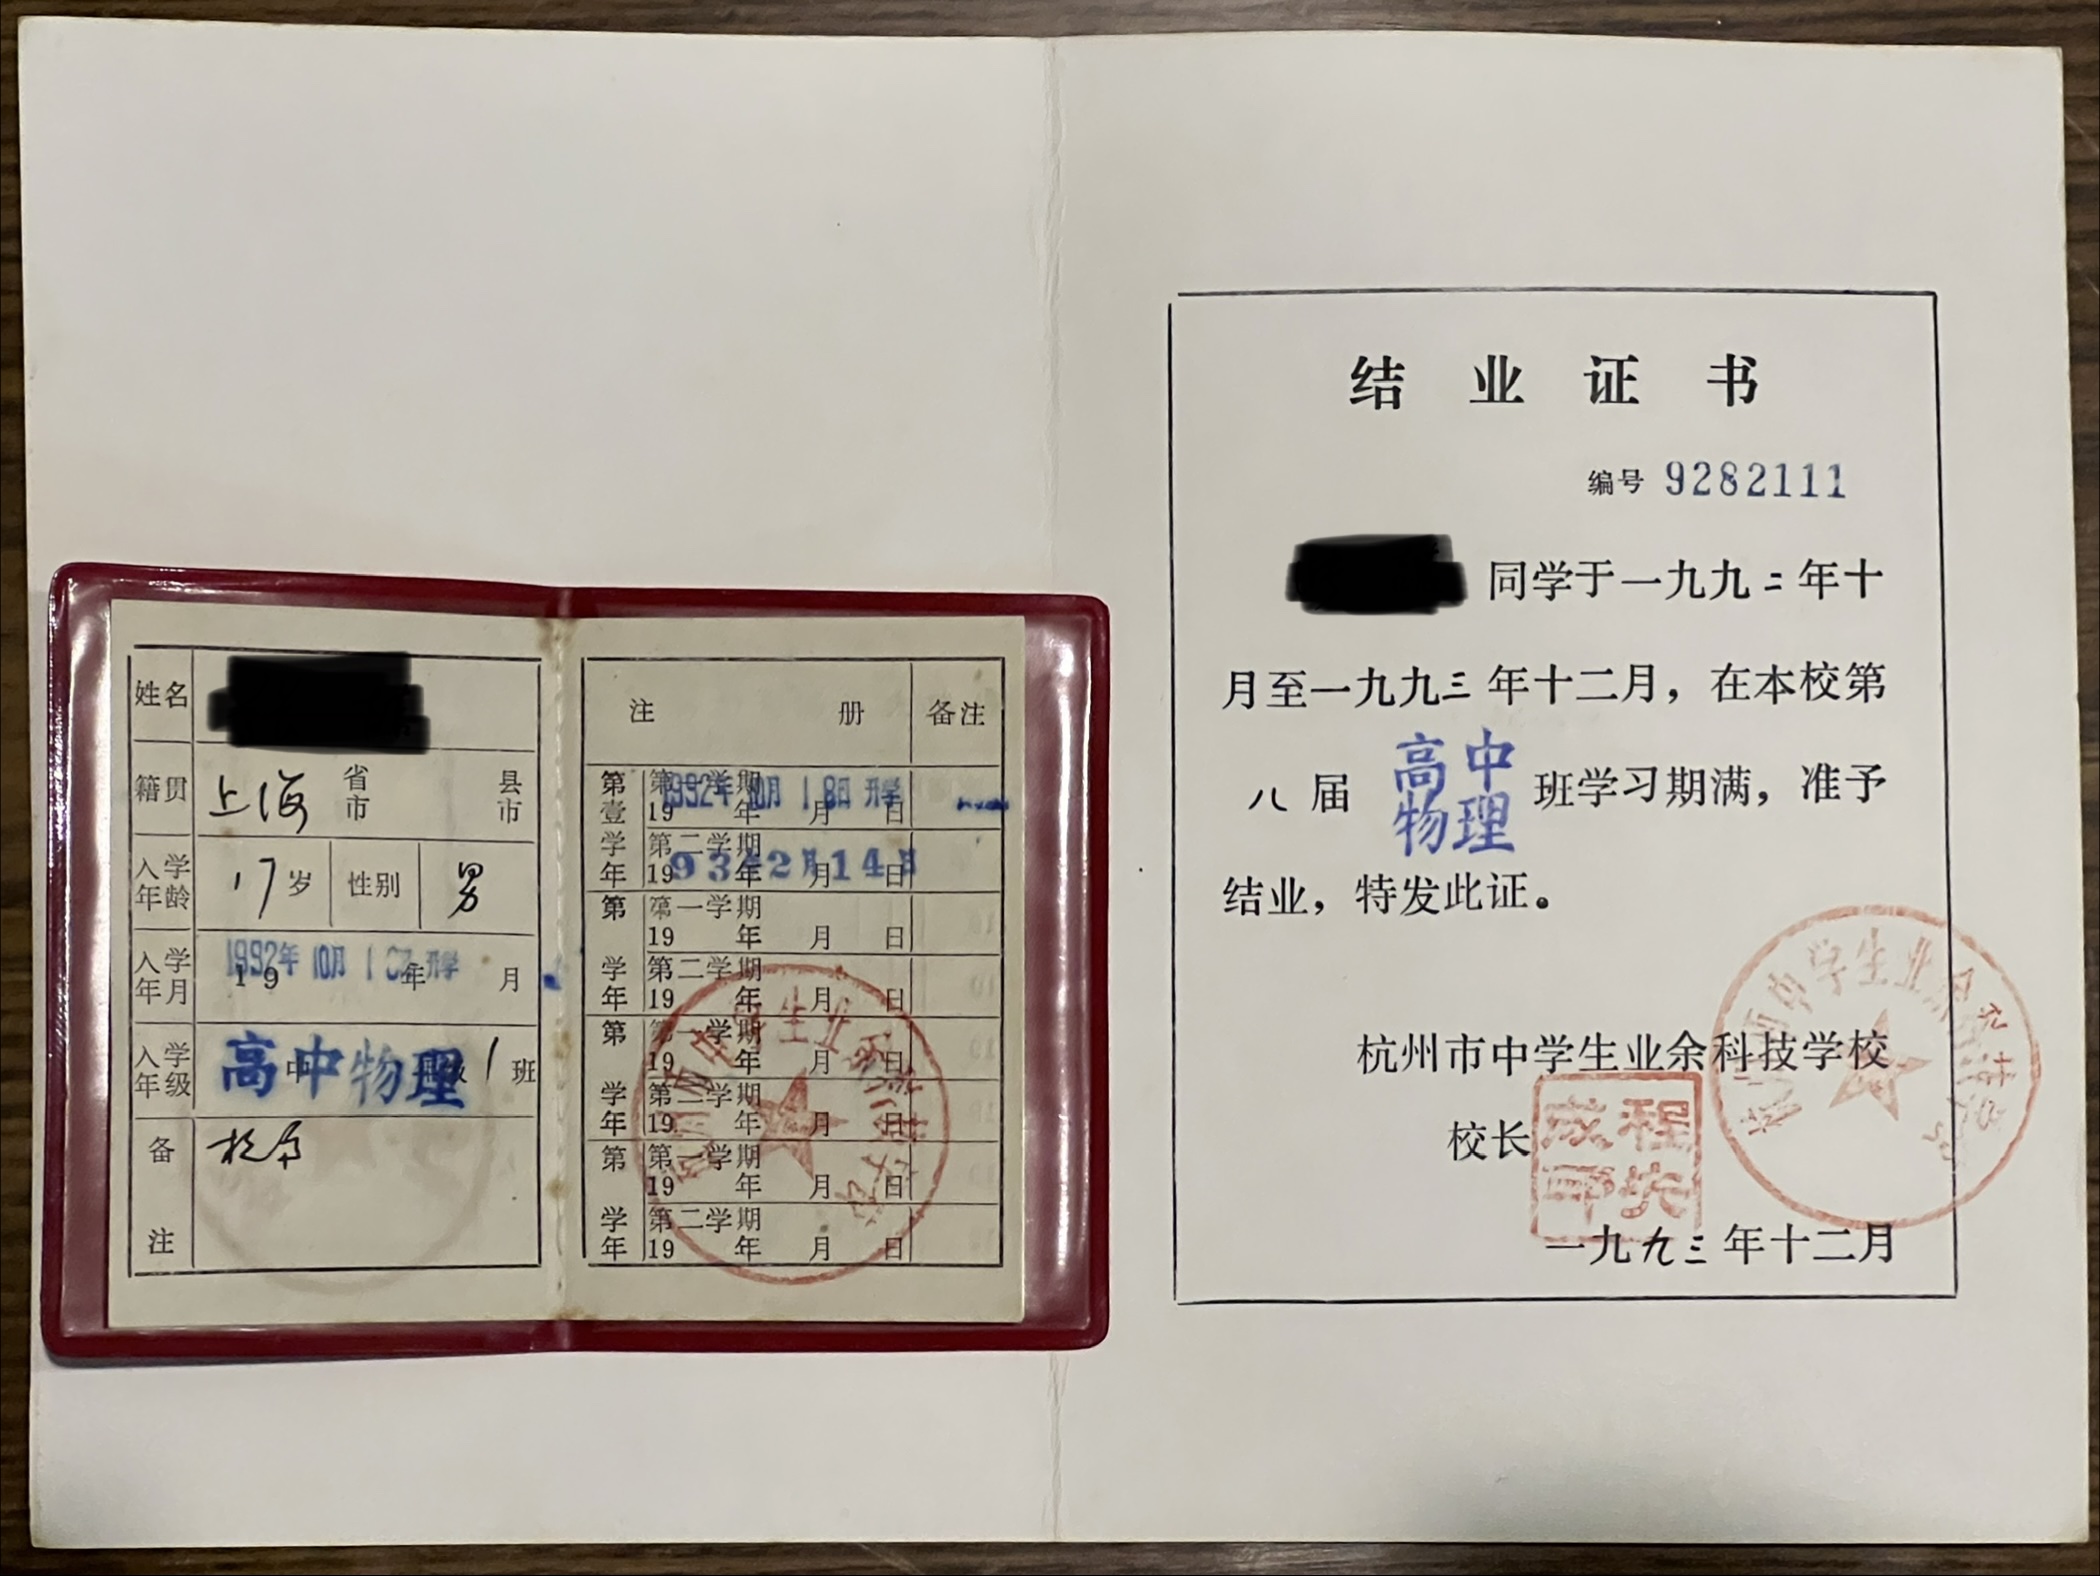 姓名
籍贯 上海 省市 县市
入学年龄 17岁 性别 男
入学年月 19 年 月
1992年10月18日开学
入学年级 高中物理 1班
备注
注册 备注
第壹学年 第一学期 19 年 月 日
1992年10月18日开学
第二学期 19 年 月 日
93年2月14日
第 学年 第一学期 19 年 月 日
第二学期 19 年 月 日
第 学年 第一学期 19 年 月 日
第二学期 19 年 月 日
第 学年 第一学期 19 年 月 日
第二学期 19 年 月 日
结业证书
编号 9282111
同学于一九九二年十
月至一九九三年十二月，在本校第
八届 高中物理 班学习期满，准予
结业，特发此证。
杭州市中学生业余科技学校
校长
一九九三年十二月